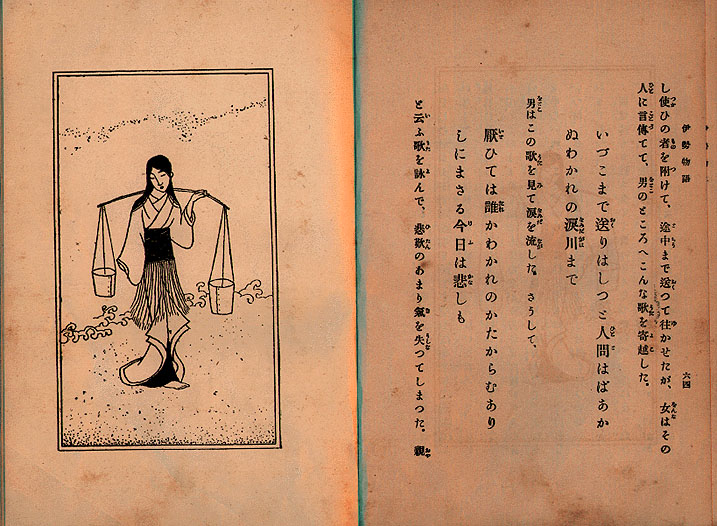 伊勢物語
六四
し使ひの者を附けて、途中まで送つて往かせたが、女はその
人に言傳てて、男のところへこんな歌を寄越した。
いづこまで送りはしつと人間はばあか
ぬわかれの涙川まで
男はこの歌を見て涙を流した。さうして、
厭ひては誰かわかれのかたからむあり
しにまさる今日は悲しも
と云ふ歌を詠んで、悲歎のあまり氣を失つてしまつた。親